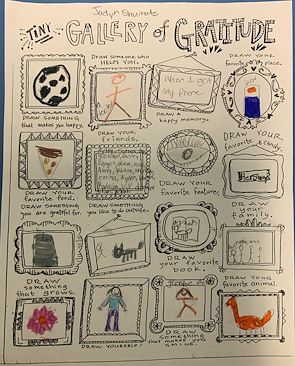 Jaclyn Shumate
Tiny GALLERY of GRATITUDE
DRAW SOMEONE WHO HELPS YOU.
DRAW YOUR favorite place.
When I got
my phone
DRAW SOMETHING that makes you happy.
DRAW YOUR friends.
DRAW A happy memory.
DRAW YOUR favorite candy.
Hershey
DRAW YOUR favorite food.
DRAW SOMETHING you like to do outside.
DRAW YOUR favorite feature.
DRAW SOMETHING you are grateful for.
DRAW YOUR favorite book.
DRAW YOUR family.
DRAW something that grows.
DRAW something that makes you SMILE.
DRAW YOUR favorite animal.
DRAW YOURSELF!